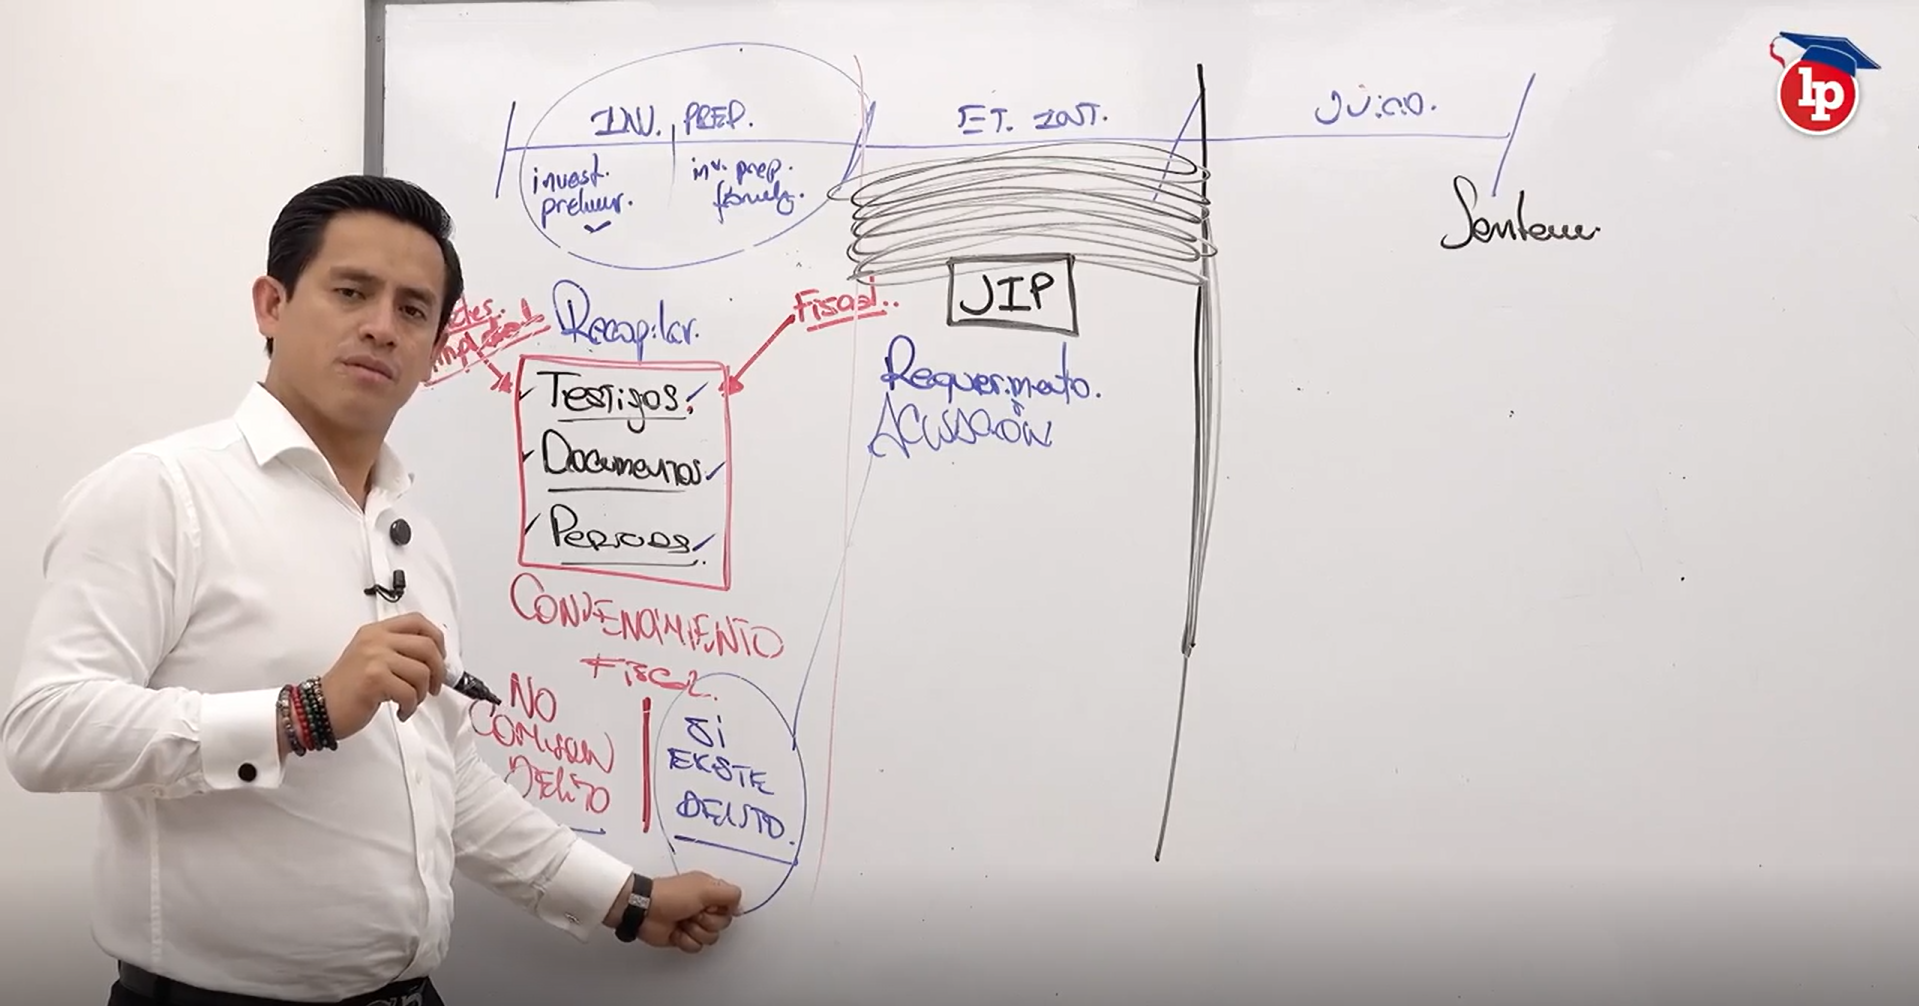 INV. PREP.
ET. INT.
JUICIO.
lp
invest.
prelimir.
inv. prep.
formaliz.
Sentenc.
Recopilar.
Fiscal..
JIP
Testigos.
Documentos
Pericias
Requerimiento.
ACUSACIÓN
CONVENCIMIENTO
FISCAL.
NO
COMISION
DELITO
SI
EXISTE
DELITO.